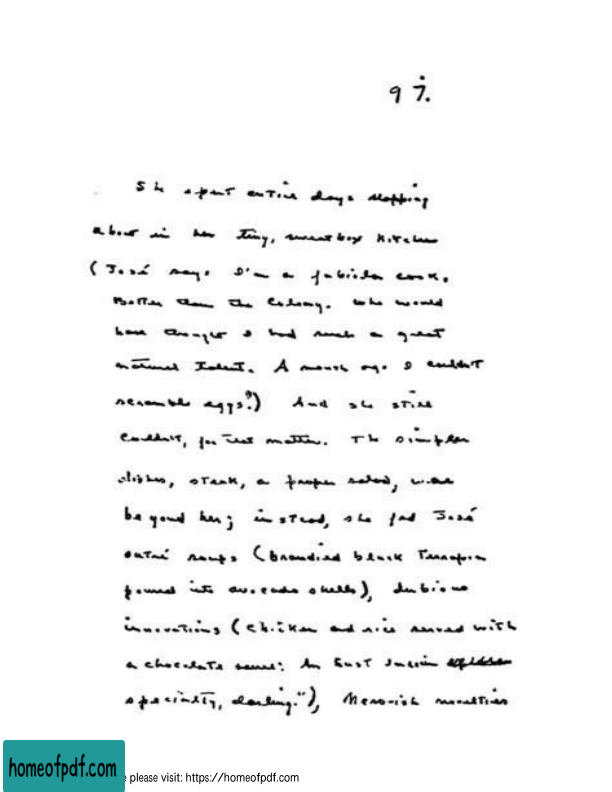 97.
She spent entire days slopping
about in her tiny, sweatbox kitchen
(José says I'm a fabulous cook.
Better than the Colony. Who would
have thought I had such a great
natural talent. A month ago I couldn't
scramble eggs.") And she still
couldn't, for that matter. The simpler
dishes, steak, a proper salad, were
beyond her; instead, she fed José
outré soups (brandied black terrapin
poured into avocado shells), dubious
innovations (chicken and rice served with
a chocolate sauce: An East Indian
specialty, darling."), Neroish novelties
homeofpdf.com
please visit: https://homeofpdf.com